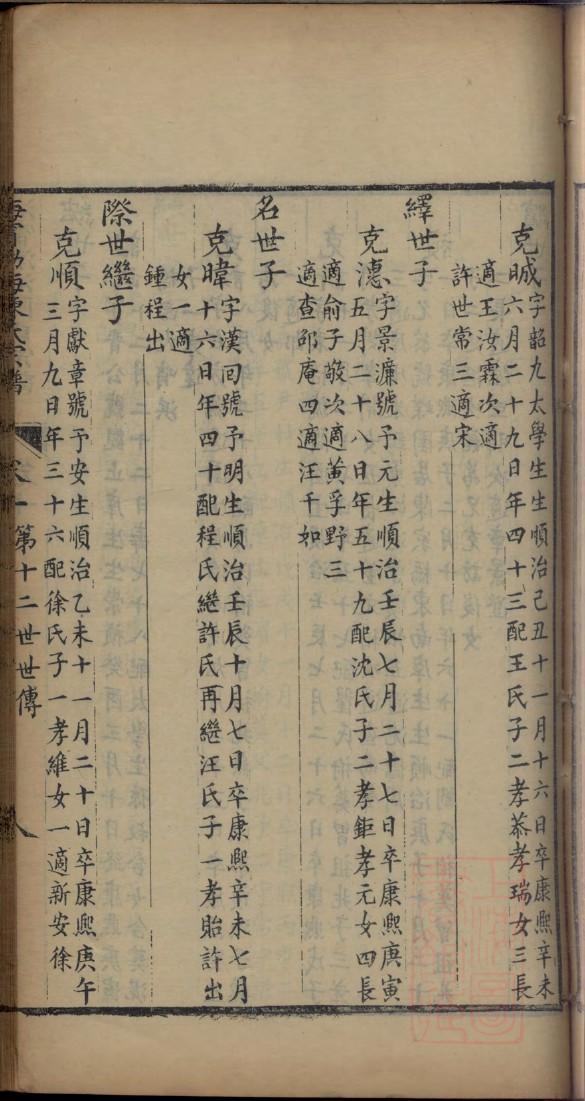 克晠字韶九太學生生順治己丑十一月十六日卒康熙辛未
六月二十九日年四十三配王氏子二孝恭孝瑞女三長
適王汝霖次適
許世常三適宋
繹世子
克字景濂號予元生順治壬辰七月二十七日卒康熙庚寅
五月二十八日年五十九配沈氏子二孝鉅孝元女四長
適俞子敬次適黃孚野三
適查邵庵四適汪千如
名世子
克暐字漢回號予明生順治壬辰十月七日卒康熙辛未七月
十六日年四十配程氏繼許氏再繼汪氏子一孝貽許出
女一適
鍾程出
際世繼子
克順字獻章號予安生順治乙未十一月二十日卒康熙庚午
三月九日年三十六配徐氏子一孝維女一適新安徐
海寧渤海陳氏宗譜
第十二世世傳
八